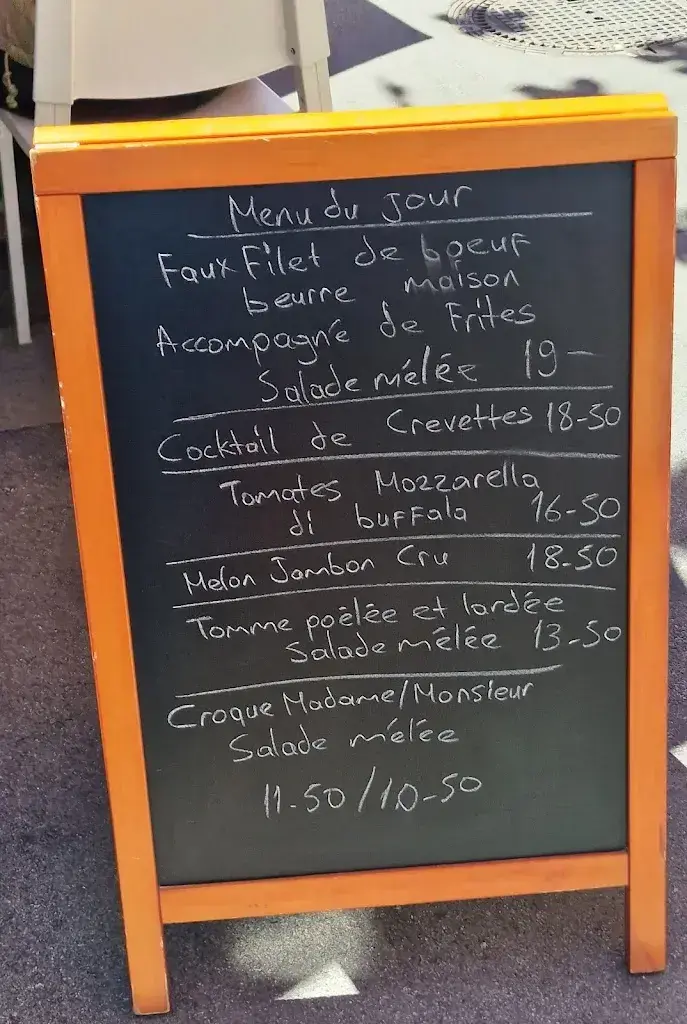 Menu du jour
Faux Filet de boeuf
beurre maison
Accompagné de Frites
Salade mélée 19-
Cocktail de Crevettes 18-50
Tomates Mozzarella
di buffala 16-50
Melon Jambon Cru 18-50
Tomme poêlée et lardée
Salade mêlée 13-50
Croque Madame/Monsieur
Salade mélée
11-50/10-50